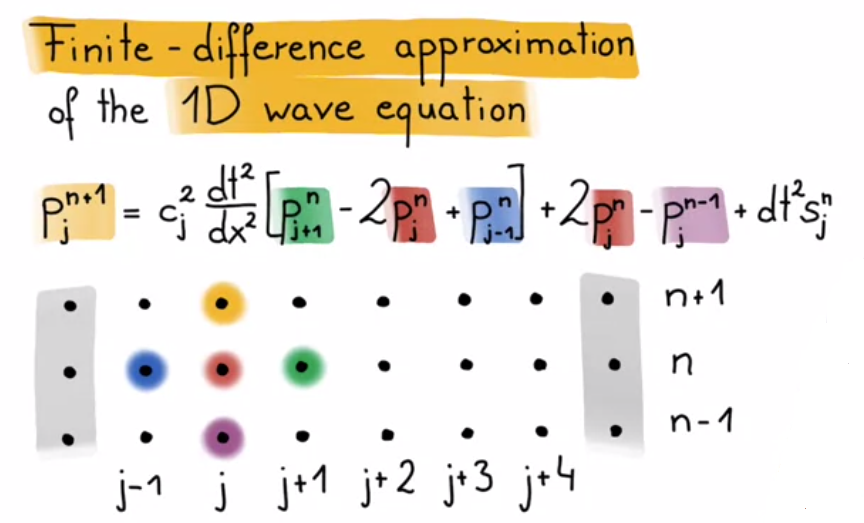 Finite-difference approximation
of the 1D wave equation
p_j^{n+1} = c_j^2 \frac{dt^2}{dx^2} [p_{j+1}^n - 2p_j^n + p_{j-1}^n] + 2p_j^n - p_j^{n-1} + dt^2 s_j^n
n+1
n
n-1
j-1 j j+1 j+2 j+3 j+4